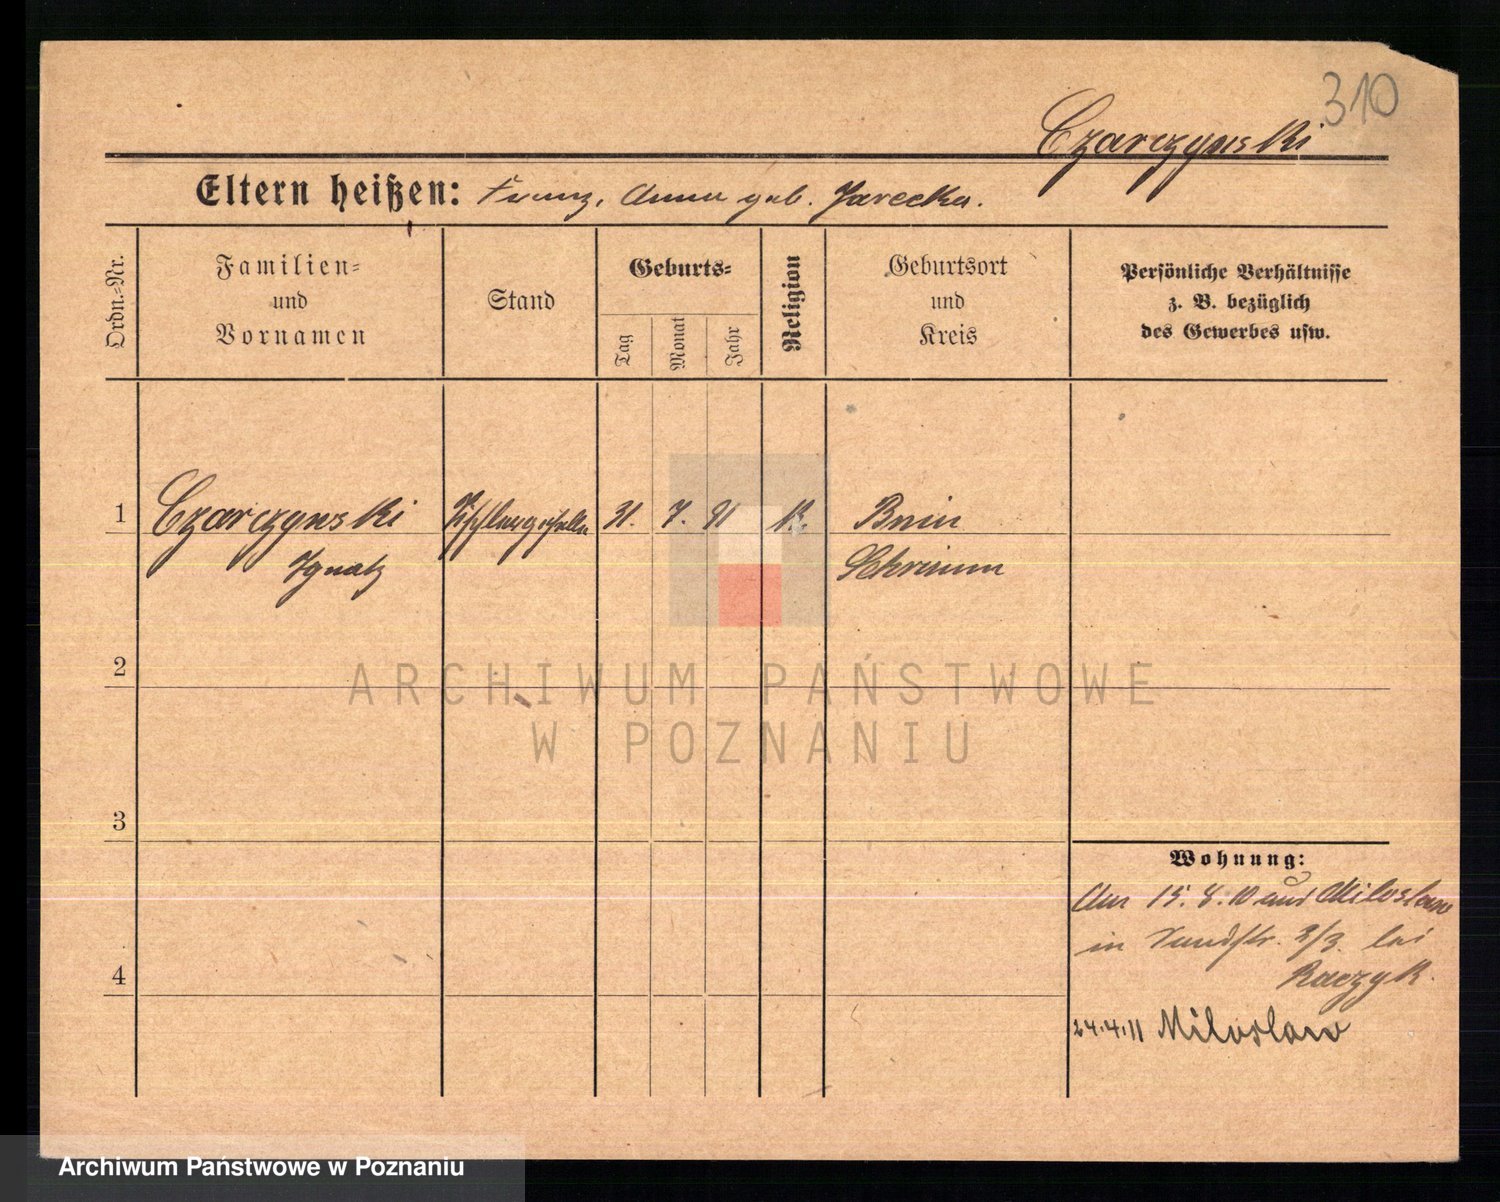 310
Czarczynski
Eltern heißen: Franz, Anna geb. Jarecka.
Ordn.-Nr.
Familien- und Vornamen
Stand
Geburts-
Tag
Monat
Jahr
Religion
Geburtsort und Kreis
Persönliche Verhältnisse
z. B. bezüglich
des Gewerbes usw.
1 Czarczynski Tischlergeselle 31. 7. 91 K. Bnin
Ignatz Schrimm
2
ARCHIWUM PAŃSTWOWE
W POZNANIU
3
Wohnung:
Am 15. 8. 10 aus Miloslaw
in Sandstr. 2/3. bei
Raczyk.
4
24.4.11 Miloslaw
Archiwum Państwowe w Poznaniu